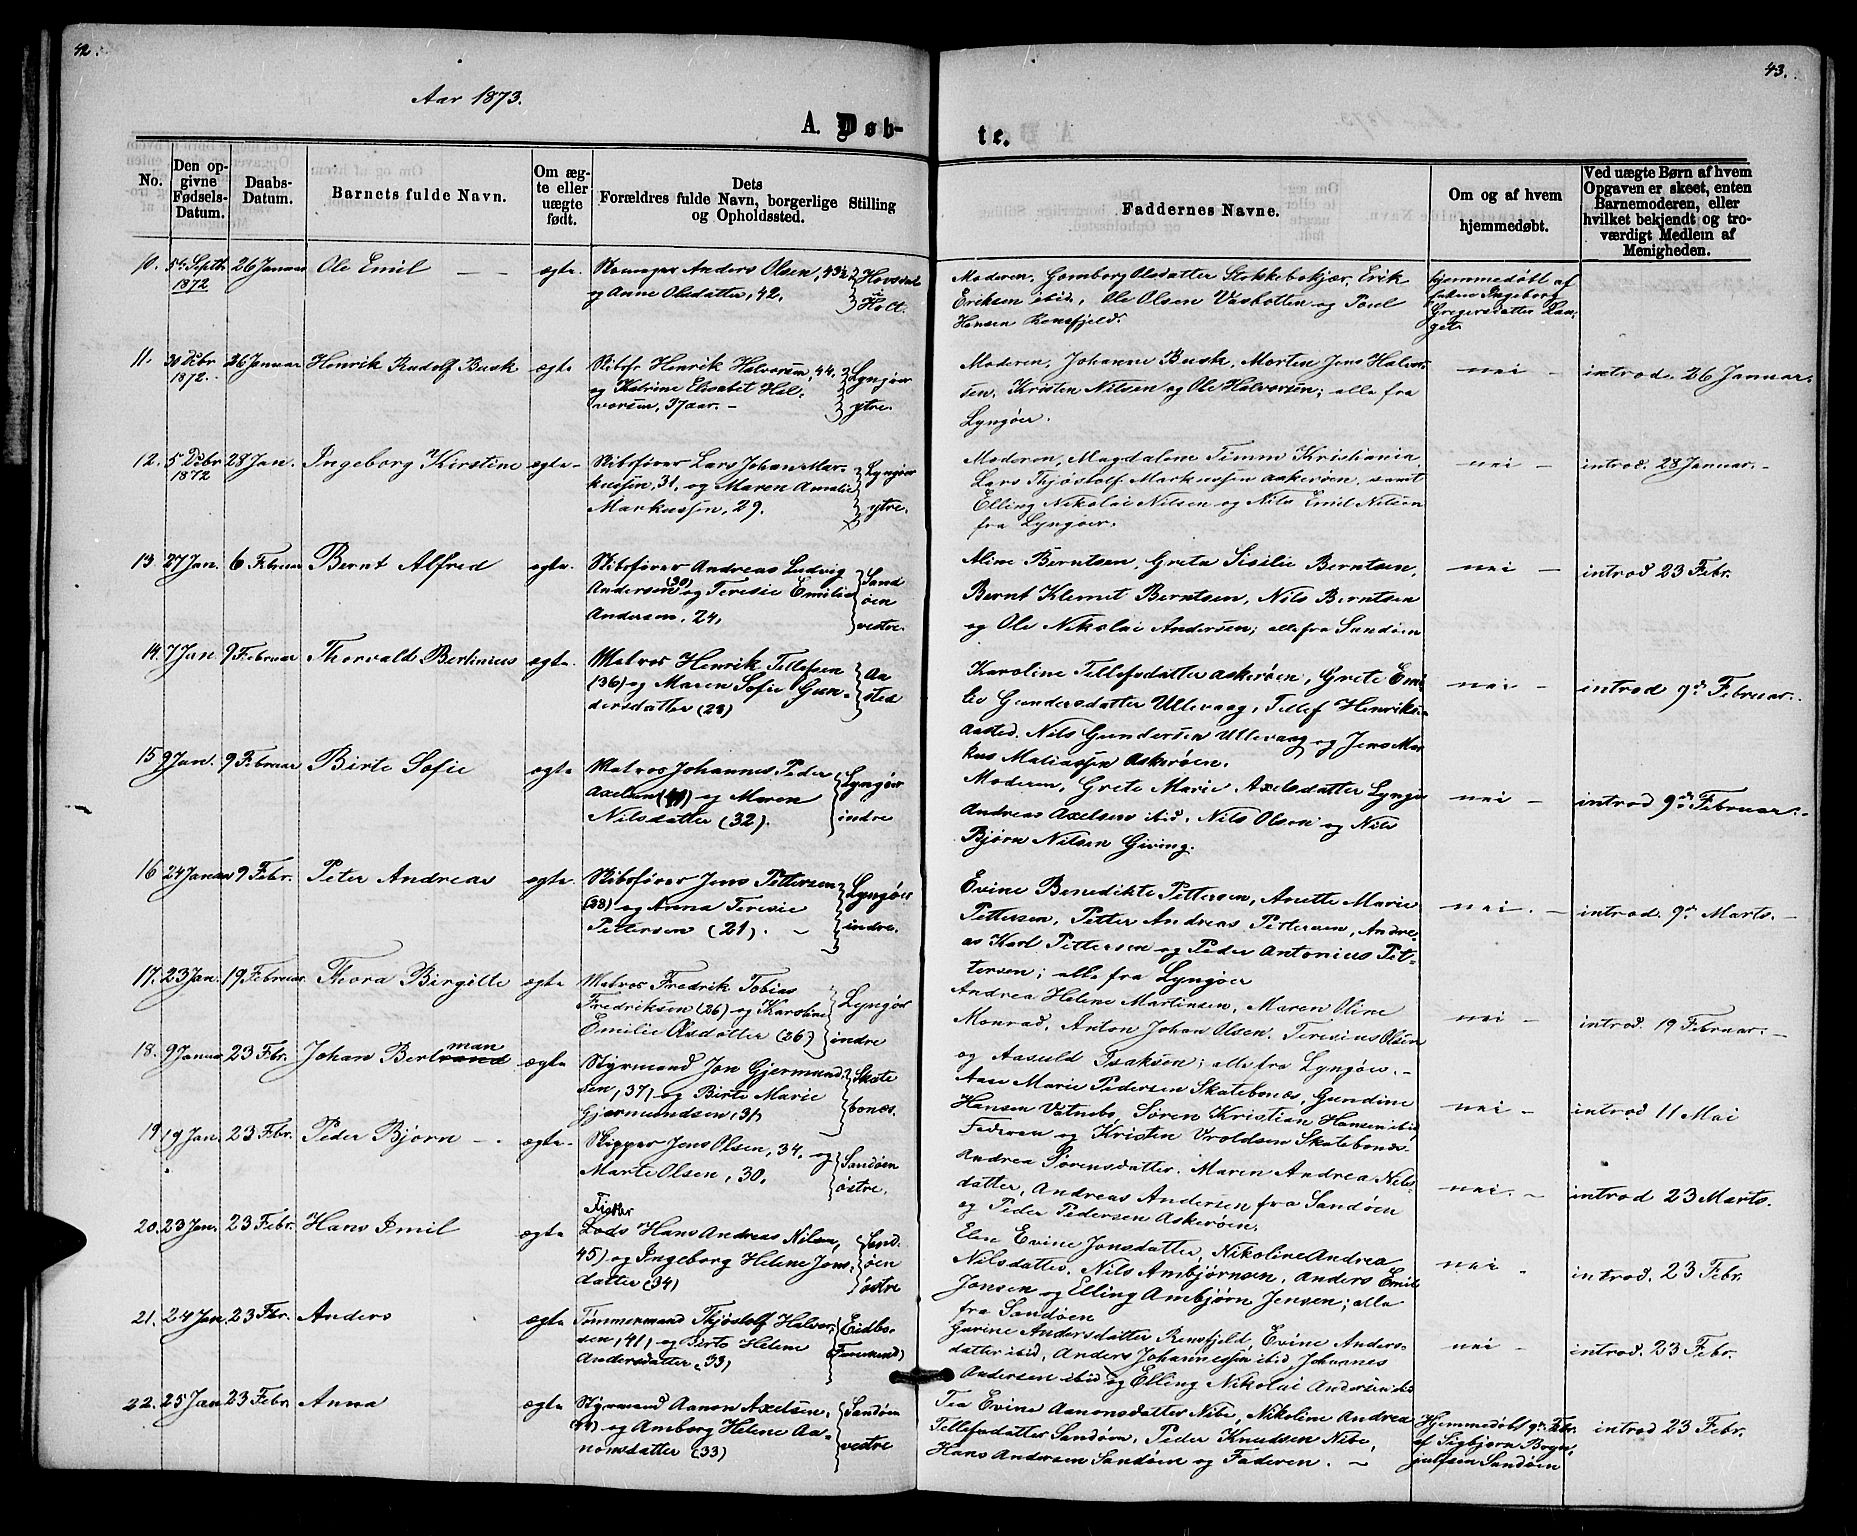 42.
43.
Aar 1873.
A. Døb-
te.
No.
Den op-
givne
Fødsels-
Datum.
Daabs-
Datum.
Barnets fulde Navn.
Om æg-
te eller
uægte
født.
Dets
Forældres fulde Navn, borgerlige Stilling
og Opholdssted.
Faddernes Navne.
Om og af hvem
hjemmedøbt.
Ved uægte Børn af hvem
Opgaven er skeet, enten
Barnemoderen, eller
hvilket bekjendt og tro-
værdigt Medlem af
Menigheden.
10. 5te Septbr 1872 26 Januar Ole Emil ægte
Anders Olsen, 43½
og Anne Olsdatter, 42.
Holt.
Moderen, Gomborg Olsdatter Stokkebokjær, Erik
Eriksen ibid, Ole Olsen Vasbotten og Poul
Hansen Rensfjeld.
Hjemmedøbt af
Ingeborg
Gregersdatter
11. 30 Decbr 1872 26 Januar Henrik Rudolf Busk ægte
Skibsfr Henrik Halvorsen, 44.
og Katrine Elisabet Hal-
vorsen, 37 aar. -
Lyngøer
ytre.
Moderen, Johanne Busk, Morten Jens Halvor-
sen, Kristen Nilsen og Ole Halvorsen; alle fra
Lyngøer.
nei
introd. 26 Januar.
12. 5 Decbr 1872 28 Jan. Ingeborg Kirstine ægte
Skibsfører Lars Johan Mar-
kussen, 31, og Maren Amalie
Markussen, 29.
Lyngøer
ytre.
Moderen, Magdalene Timm Kristiania,
Lars Thjøstolf Markussen Askerøen, samt
Elling Nikolai Nilsen og Nils Emil Nilsen
fra Lyngøer.
nei -
introd. 28 Januar. -
13. 27 Jan. 6 Februar Bernt Alfred ægte
Skibsfører Andreas Ludvig
Andersen (30) og Teresie Emilie
Andersen, 24,
Sand
øen
vestre.
Aline Berntsen, Grete Sisilie Berntsen,
Bernt Klemet Berntsen, Nils Berntsen
og Ole Nikolai Andersen; alle fra Sandøen
nei -
introd 23 Febr.
14. 7 Jan 9 Februar Thorvald Bertinius ægte.
Matros Henrik Tellefsen
(36) og Maren Sofie Gun-
dersdatter (28)
Aa
sted
Karoline Tellefsdatter Askerøen, Grete Emi-
lie Gundersdatter Ullevaag, Tellef Henriksen
Aasted. Nils Gundersen Ullevaag og Jens Mar-
kus Matiassen Askerøen.
nei -
introd 9de Februar. -
15 9 Jan. 9 Februar Birte Sofie ægte
Matros Johannes Peder
Axelsen (41) og Maren
Nilsdatter (32).
Lyngøer
indre
Moderen, Grete Marie Axelsdatter Lyngør
Andreas Axelsen ibid, Nils Olsen og Nils
Bjørn Nilsen Giving.
nei -
introd 9de Februar. -
16 24 Januar 9 Febr. Peter Andreas ægte.
Skibsfører Jens Pettersen
(28) og Anna Teresie
Pettersen (21). -
Lyngøer
indre.
Evine Benedikte Pettersen, Anette Marie
Pettersen, Petter Andreas Pettersen, Andre-
as Karl Pettersen og Peder Antonius Pet-
tersen; alle fra Lyngøer
nei. -
introd. 9de Marts. -
17. 23 Jan. 19 Februar. Thora Birgitte ægte
Matros Fredrik Tobias
Fredriksen (26) og Karoline
Emilie Olsdatter (26)
Lyngør
indre
Andrea Helene Martinsen, Maren Oline
Monrad, Anton Johan Olsen. Teresius Olsen
og Aasuld Isaksen; alle fra Lyngøer. -
nei -
introd. 19 Februar. -
18. 9 Januar 23 Febr. Johan Bertrand man ægte
Styrmand Jon Gjermund
sen, 37) og Birte Marie
Gjermundsen, 31)
Skate
bonæs.
Aase Marie Pedersen Skatebonæs, Gundine
Hansen Vatnebo, Søren Kristian Hansen ibid,
Faderen og Kristen Vroldsen Skatebonæs
nei -
introd 11 Mai
19 19 Jan. 23 Febr. Peder Bjørn ægte.
Skipper Jens Olsen, 34. og
Marte Olsen, 30.
Sandøen
østre.
Andrea Sørensdatter. Maren Andrea Nils-
datter, Andreas Andersen fra Sandøen
og Peder Pedersen Askerøen.
nei. -
introd 23 Marts.
20. 23 Jan. 23 Febr. Hans Emil ægte
Fisker
Lods Hans Andreas Nilsen,
45) og Ingeborg Helene Jens-
datter (34)
Sand-
øen
østre
Else Evine Jonsdatter, Nikoline Andrea
Nilsdatter. Nils Ambjørnsen, Anders Emil
Jensen og Elling Ambjørn Jensen; alle
fra Sandøen
nei
introd. 23 Febr.
21. 24 Jan 23 Febr. Anders ægte
Tømmermand Thjøstolf Halvor
sen, (41) og Birte Helene
Andersdatter, 33)
Eidbo-
Gurine Andersdatter Rensfjeld, Evine Anders-
datter ibid, Anders Johannessen ibid, Johannes
Andersen ibid og Elling Nikolai Andersen ibid
nei -
introd. 23 Febr.
22. 25 Jan 23 Febr. Anna ægte
Styrmand Aanon Axelsen,
44) og Amborg Helene Aa-
nonsdatter (33)
Sandøen
vestre
Tea Evine Aanonsdatter Nibe, Nikoline Andrea
Tellefsdatter Sandøen, Peder Knudsen Nibe,
Hans Andersen Sandøen og Faderen. -
Hjemmedøbt 9de Febr.
af Sigbjørn
Sandøen
introd 23 Febr.